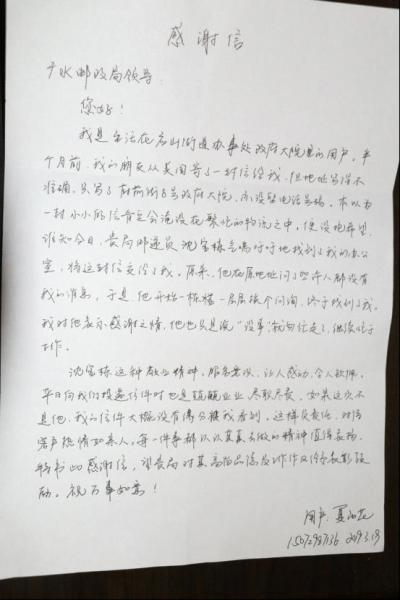 感谢信
广水邮政局领导：
您好！
我是生活在应山街道办事处政府大院里的用户，半
个月前，我的朋友从美国寄了一封信给我，但地址写得不
准确，只写了 街8号政府大院，亦没留电话号码，本以为
一封小小的信肯定会淹没在繁忙的物流之中，便没抱希望，
谁知今日，贵局邮递员沈宝栋气喘吁吁地找到了我的办公
室，将这封信交给了我。原来，他在原地址问了些许人都没有
我的消息，于是他开始一栋楼一层层挨个问询，终于找到了我，
我对他表示感谢之情，他也只是说“没事”就匆匆走了，继续忙于
工作。
沈宝栋这种敬业精神，服务意识，让人感动，令人钦佩，
平日向我们投递信件时也是兢兢业业，尽职尽责，如果这次不
是他，我的信件大概没有缘分被我看到，这样负责任，对待
客户热情如亲人，每一件事都认认真真去做的精神值得表扬，
特书此感谢信，望贵局对其高尚品德及工作作风给予表彰鼓
励。祝万事如意！
用户：夏
2019.3.19